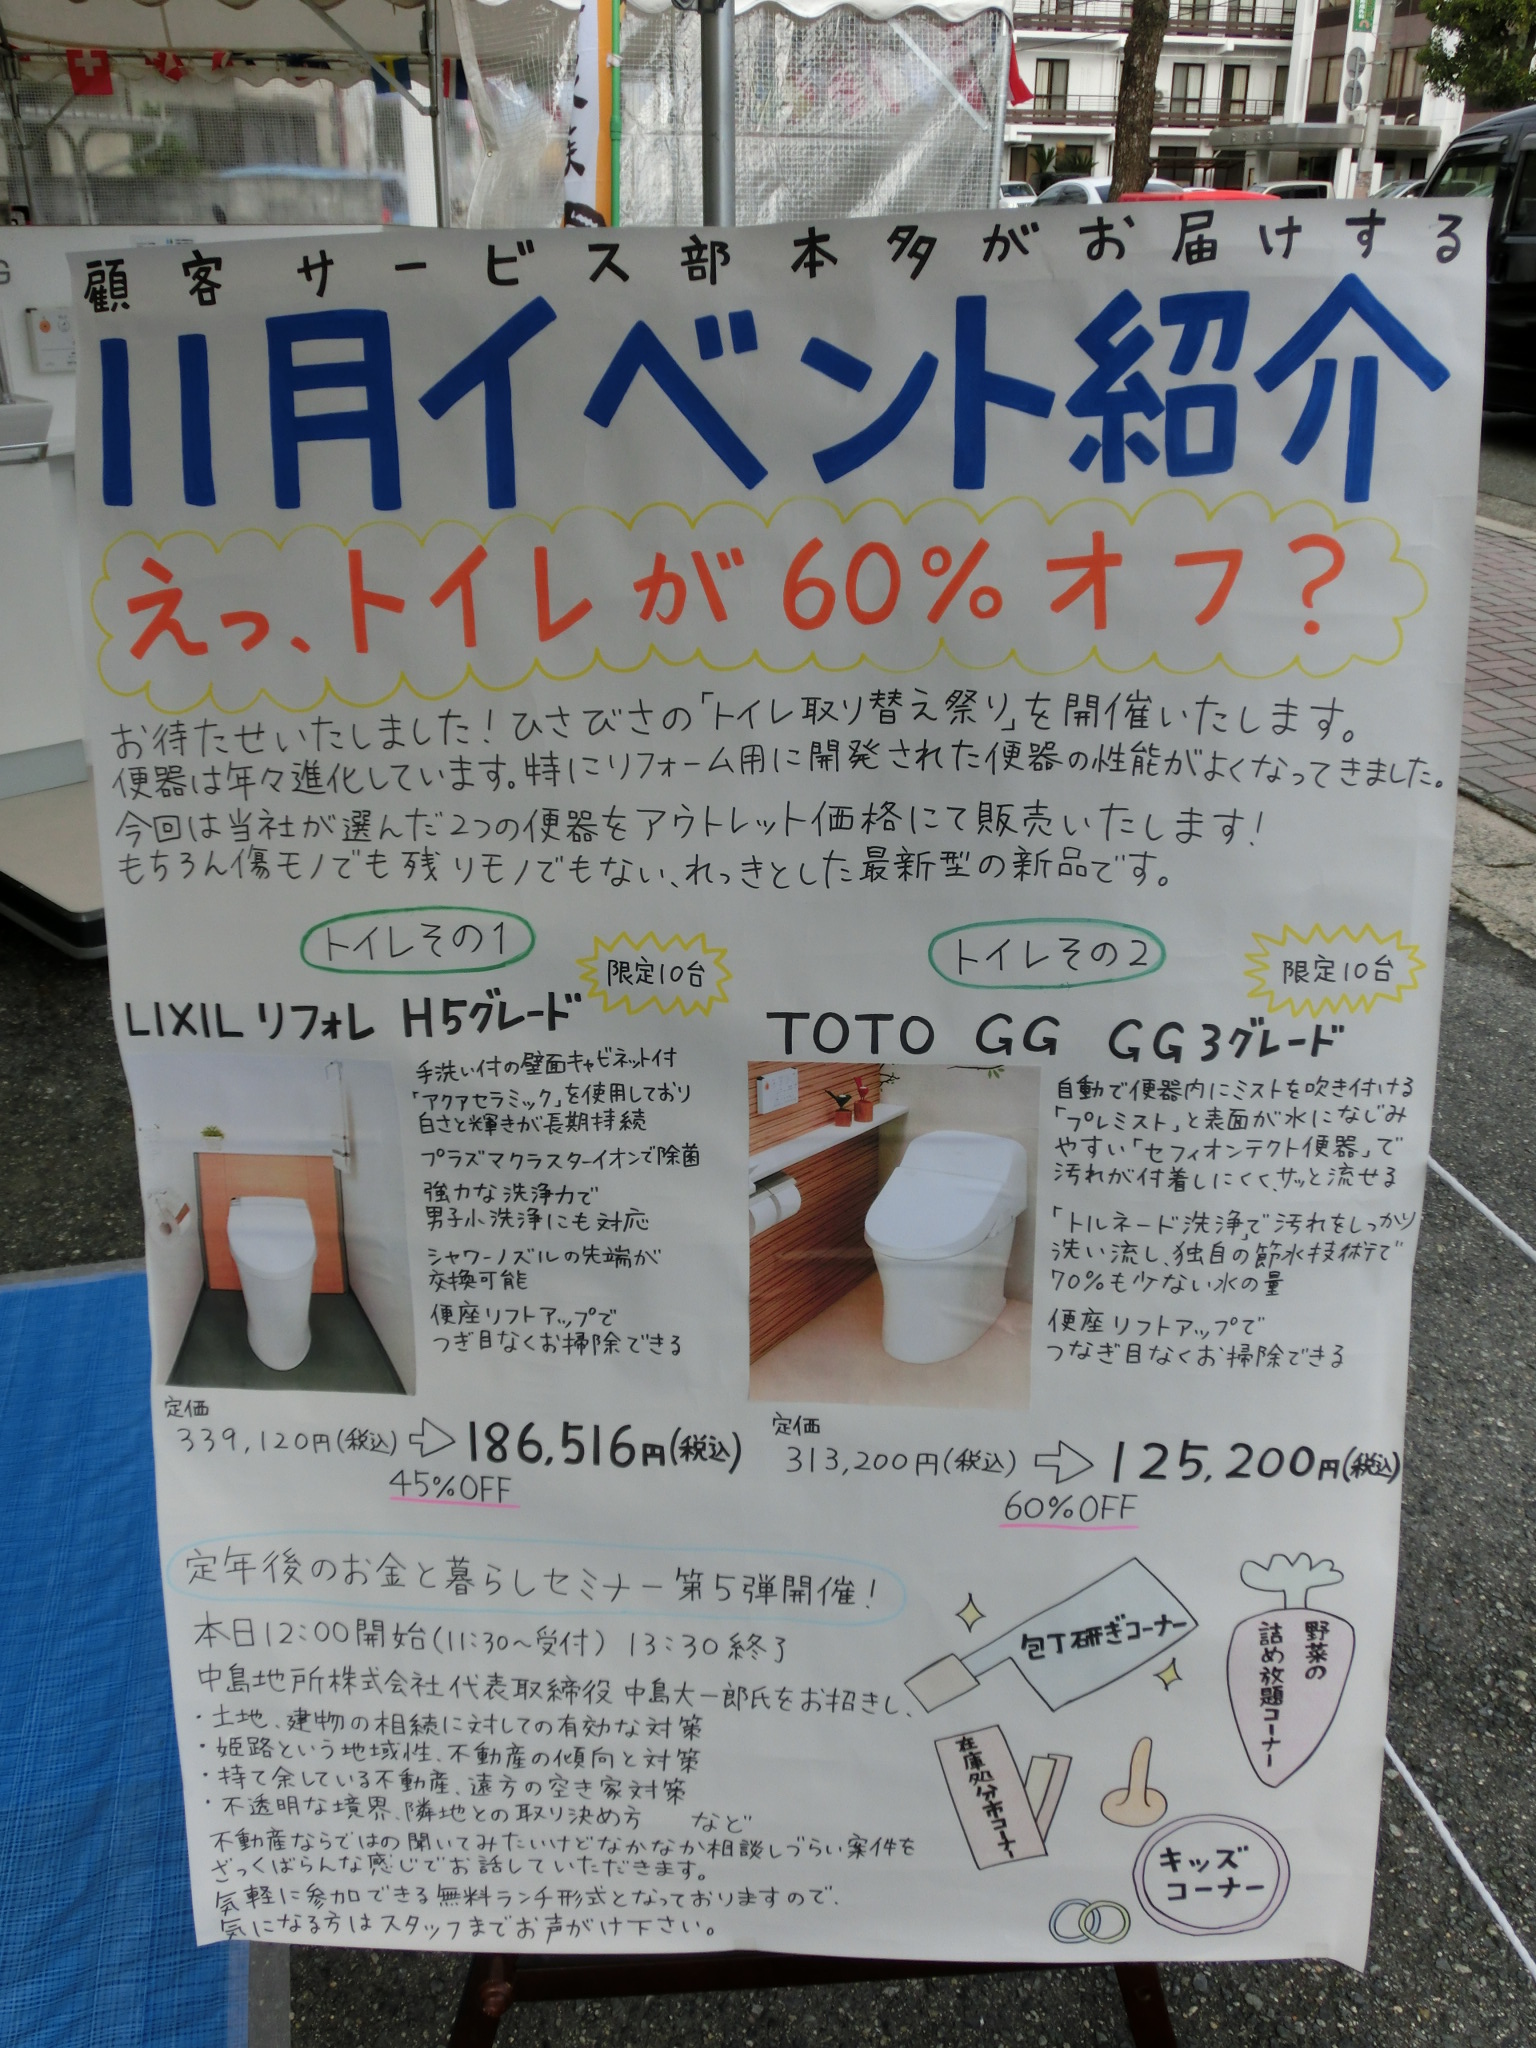 顧客サービス部本多がお届けする
11月イベント紹介
えっ、トイレが60%オフ?
お待たせいたしました!ひさびさの「トイレ取り替え祭り」を開催いたします。
便器は年々進化しています。特にリフォーム用に開発された便器の性能がよくなってきました。
今回は当社が選んだ2つの便器をアウトレット価格にて販売いたします!
もちろん傷モノでも残りモノでもない、れっきとした最新型の新品です。
トイレその1
限定10台
LIXILリフォレ H5グレード
手洗い付の壁面キャビネット付
「アクアセラミック」を使用しており
白さと輝きが長期持続
プラズマクラスターイオンで除菌
強力な洗浄力で
男子小洗浄にも対応
シャワーノズルの先端が
交換可能
便座リフトアップで
つぎ目なくお掃除できる
定価
339,120円(税込)⇨186,516円(税込)
45%OFF
トイレその2
限定10台
TOTO GG GG3グレード
自動で便器内にミストを吹き付ける
「プレミスト」と表面が水になじみ
やすい「セフィオンテクト便器」で
汚れが付着しにくく、サッと流せる
「トルネード洗浄」で汚れをしっかり
洗い流し、独自の節水技術で
70%も少ない水の量
便座リフトアップで
つなぎ目なくお掃除できる
定価
313,200円(税込)⇨125,200円(税込)
60%OFF
定年後のお金と暮らしセミナー第5弾開催!
本日12:00開始(11:30~受付) 13:30終了
中島地所株式会社代表取締役 中島大一郎氏をお招きし、
・土地、建物の相続に対しての有効な対策
・姫路という地域性、不動産の傾向と対策
・持て余している不動産、遠方の空き家対策
・不透明な境界、隣地との取り決め方 など
不動産ならではの聞いてみたいけどなかなか相談しづらい案件を
ざっくばらんな感じでお話していただきます。
気軽に参加できる無料ランチ形式となっておりますので、
気になる方はスタッフまでお声がけ下さい。
包丁研ぎコーナー
野菜の
詰め放題コーナー
在庫処分市コーナー
キッズ
コーナー